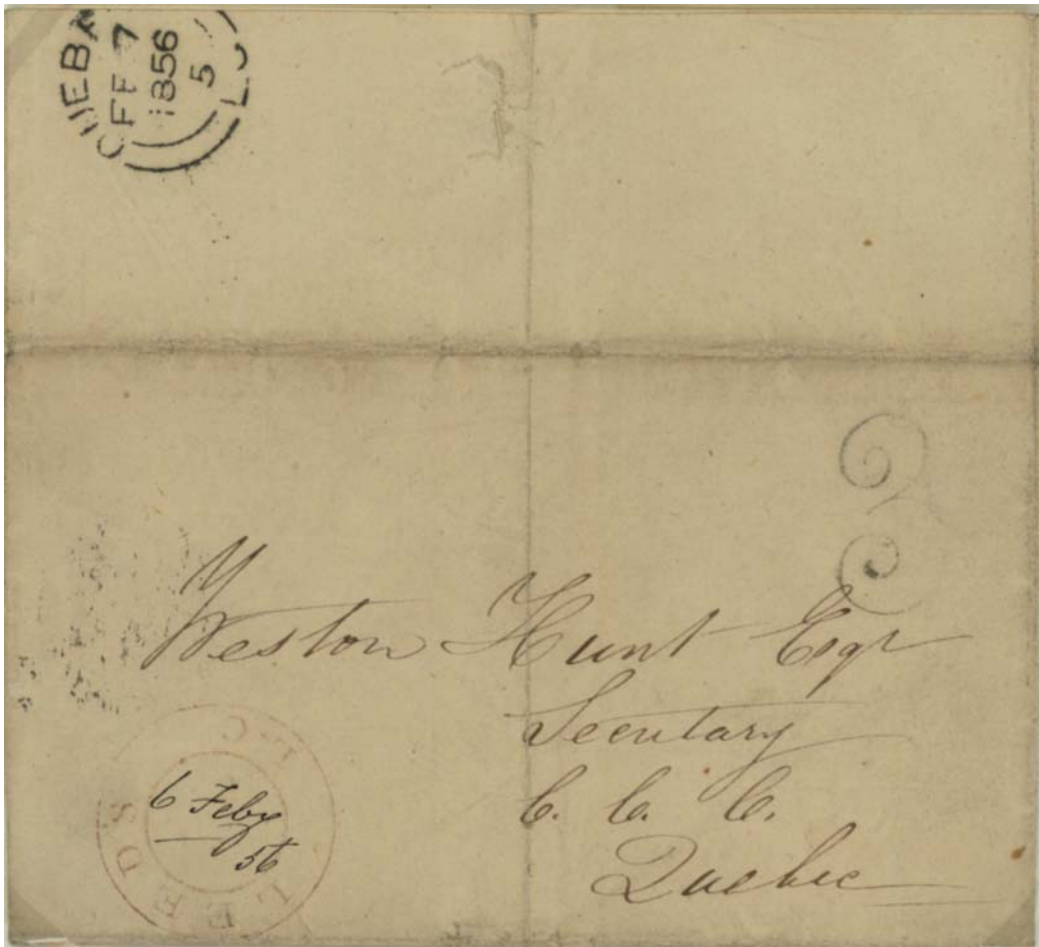 QUEBEC
FE 7
1856
5
L.C
Weston Hunt Esqr
Secretary
C. C. C.
Quebec
LEEDS L.C
6 Feby
56